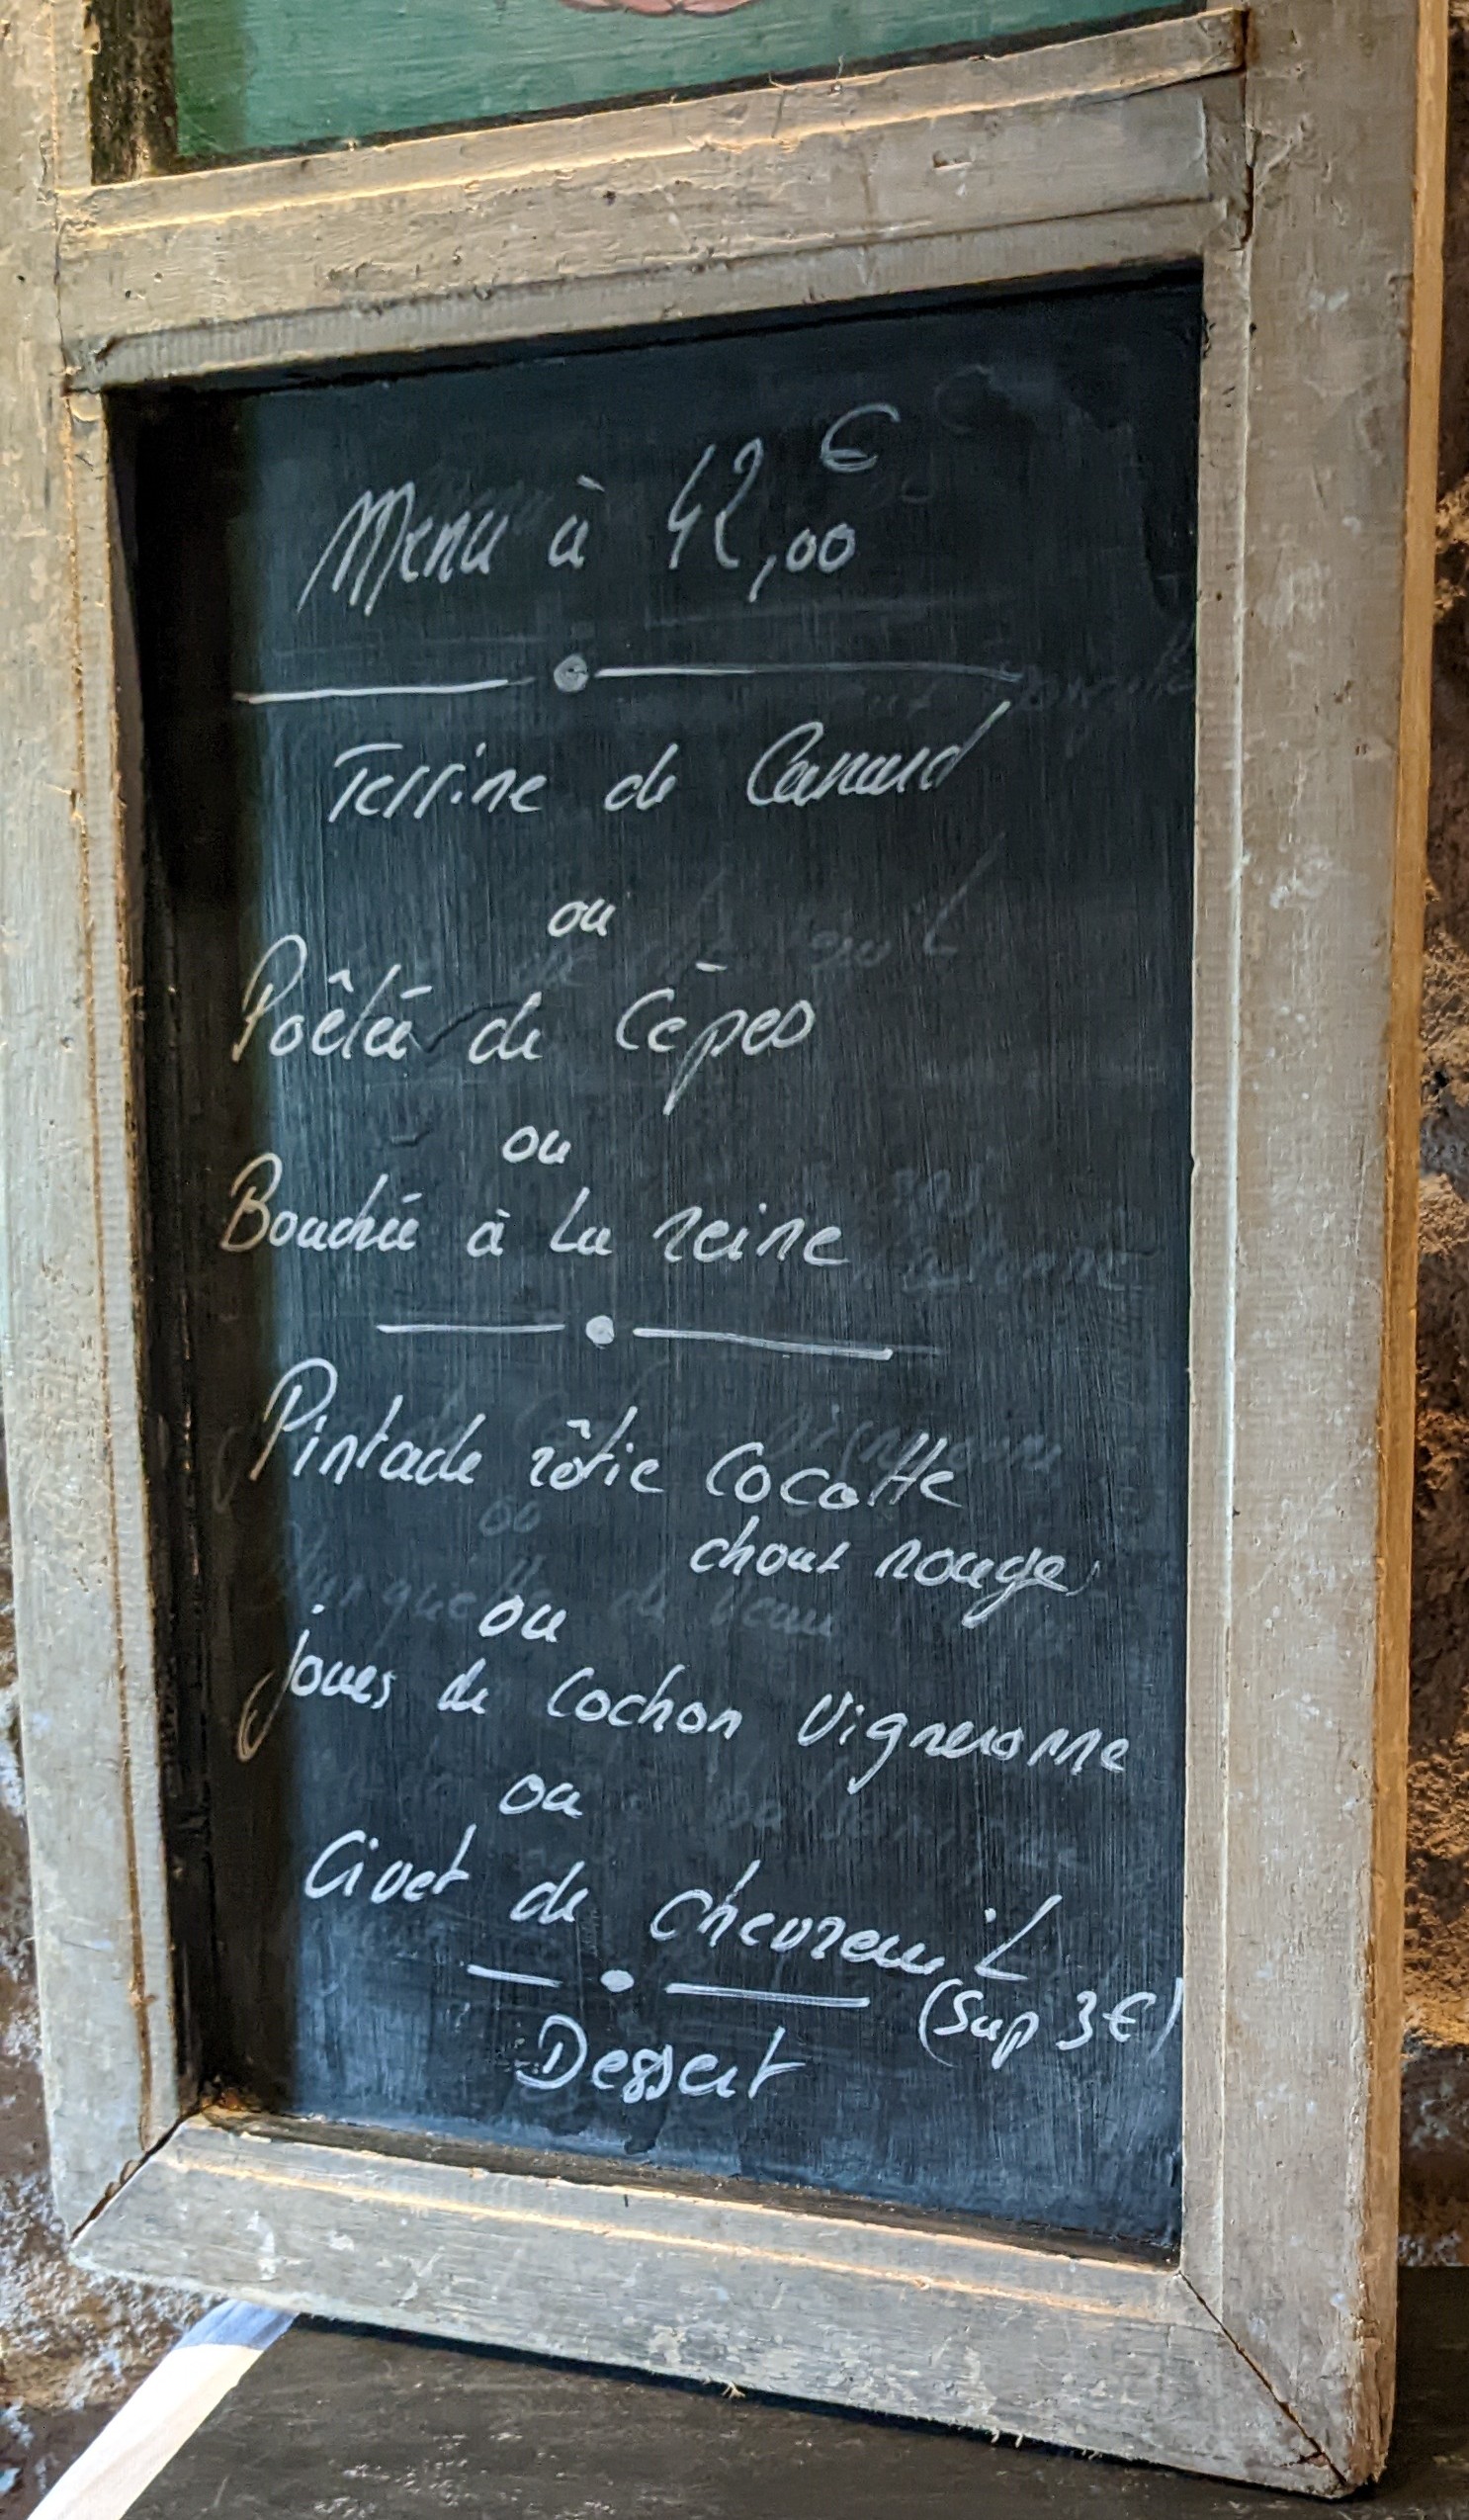 Menu à 42,00 €
Terrine de Canard
ou
Poêlée de Cèpes
ou
Bouchée à la reine
Pintade rôtie Cocotte
chout rouge
ou
joues de cochon Vigneronne
ou
Civet de chevreuil
(Sup 3€)
Dessert